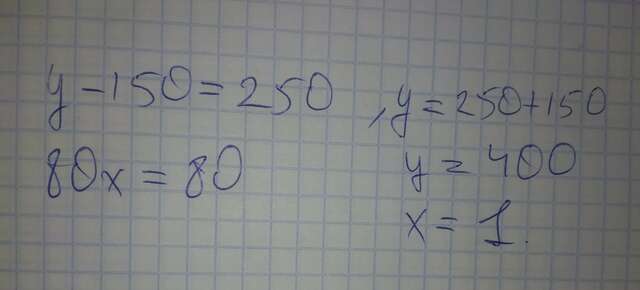 y-150=250
80x=80
, y=250+150
y=400
x=1.